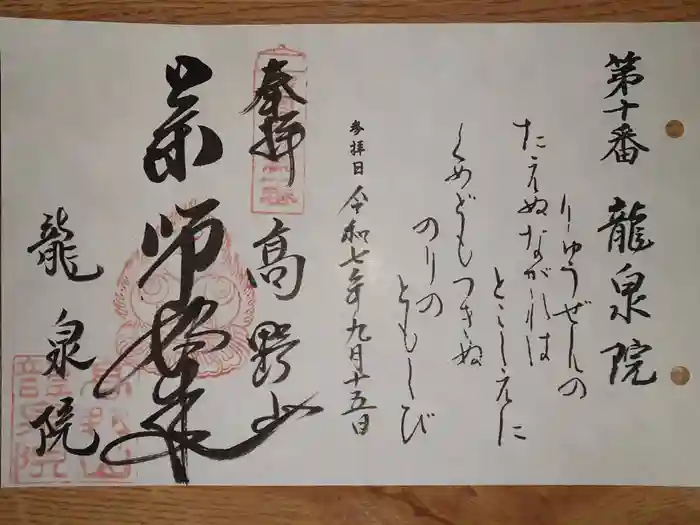 第十番 龍泉院
りゅうぜんの
たえぬながれは
とこしえに
くめどもつきぬ
のりの
ともしび
参拝日 令和七年九月十五日
奉拝 高野山
薬師如来
龍泉院